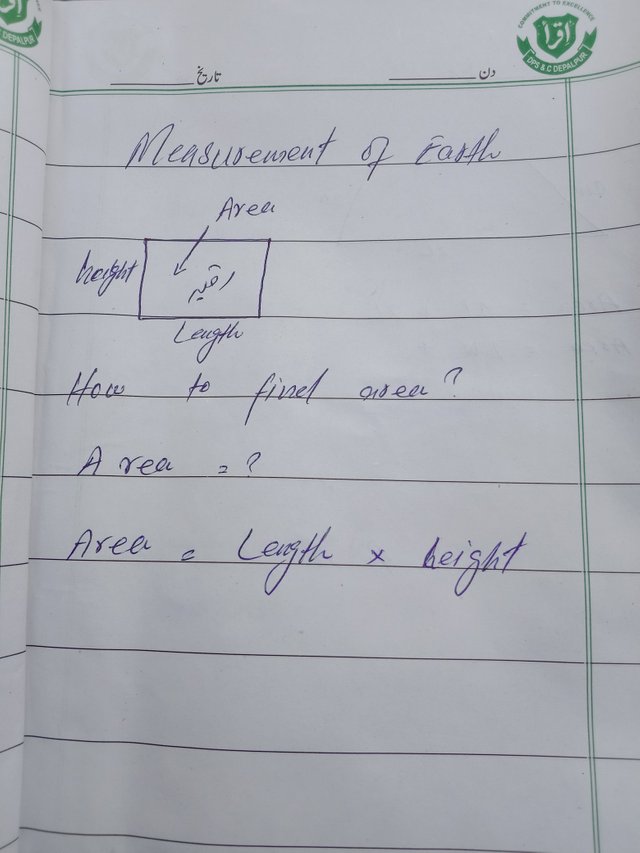 COMMITMENT TO EXCELLENCE
اقرأ
DPS & C DEPALPUR
DEPALPUR
تاریخ
دن
Measurement of Earth
Area
height
رقبہ
Length
How to find area?
Area = ?
Area = Length × height